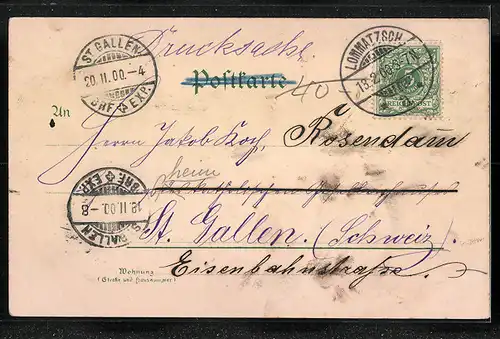 Drucksache
Postkarte
ST. GALLEN
20.II.00.-4
BRF. EXP.
LOMMATZSCH
5
REICHSPOST
40
An
Herrn Jakob Koch, Rosendam
heim
St. Gallen (Schweiz)
Eisenbahnstraße
BRF. EXP.
II.00.-8
ST. GALLEN
Wohnung
(Straße und Hausnummer)